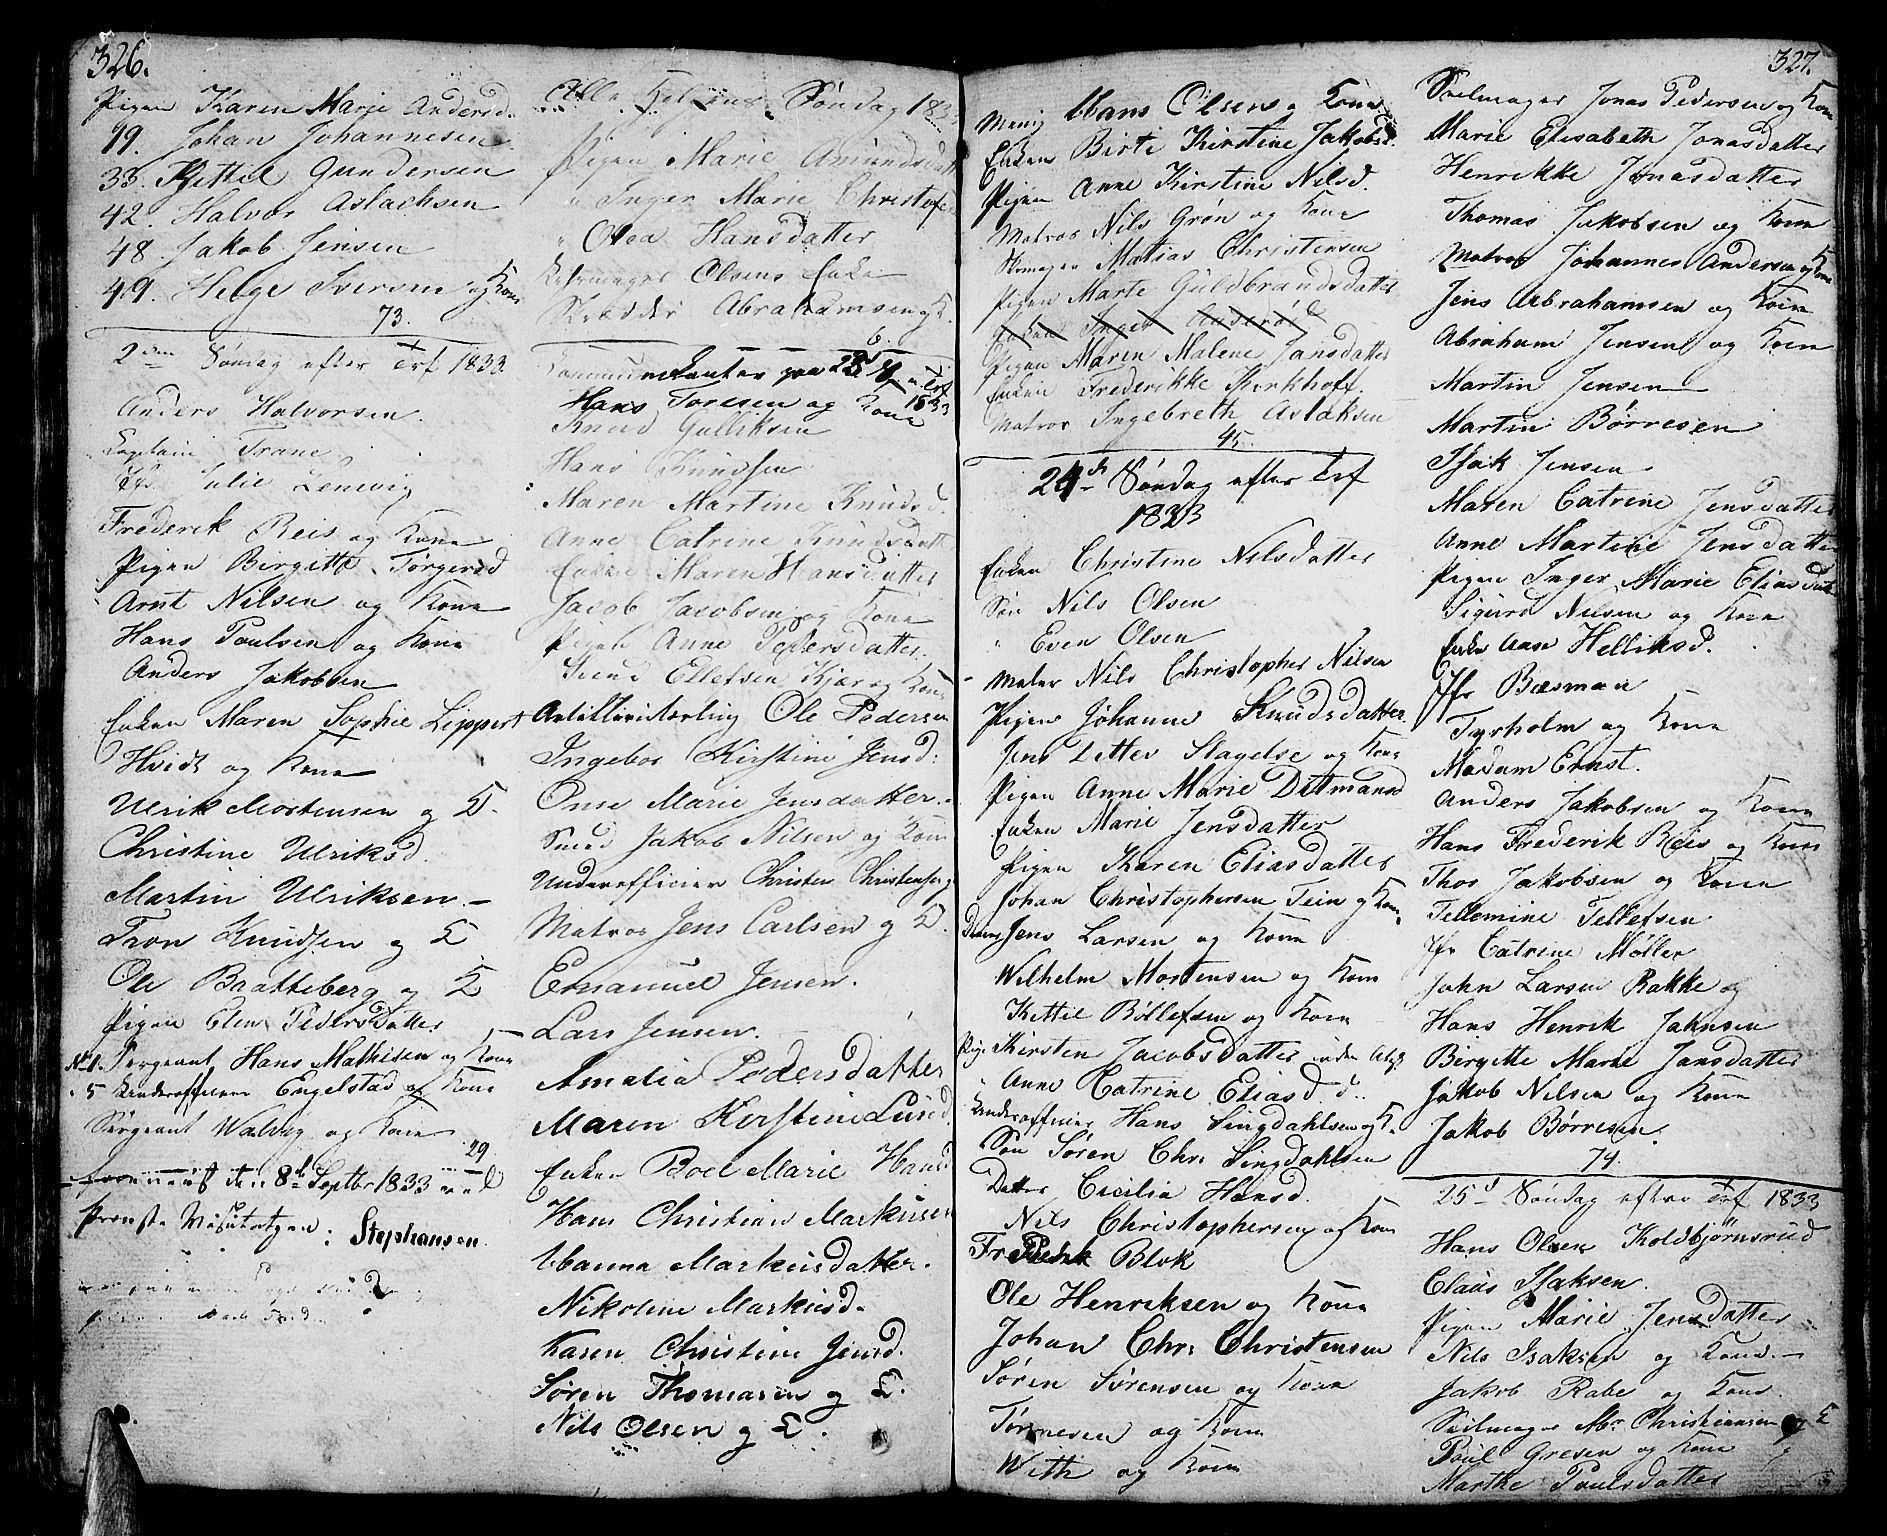 326.
Pigen Karen Marie Andersd.
19. Johan Johannesen
33. Kittil Gundersen
42. Halvor Aslachsen
48. Jakob Jensen
49. Helge Iversen og Kone
73.
2den Søndag efter Trf 1833.
Anders Halvorsen.
Captain Trane
Julie Lenvig
Frederik Reis og Kone
Pigen Birgitte Törgersd
Arnt Nilsen og Kone
Hans Poulsen og Kone
Anders Jakobsen
Enken Maren Sophie Lippert
Hvidt og Kone
Ulrik Mortensen og K.
Christine Ulriksd.
Martin Ulriksen.
Tron Knudsen og K
Ole Bratteberg og K
Pigen Elen Pedersdatter
No 1. Sergeant Hans Mathisen og Kone
5 Underofficeer Engelstad og Kone
Sergeant Walvig og Kone
29.
den 8d Septbr 1833 ved
Provste Visitatzen: Stephansen.
Alle Helgens Søndag 183
Pigen Marie Amundsdatt
" Inger Marie Christof
" Olea Hansdatter
Olsens Enke
Skredder Abrahamsen og K.
6.
Kommunikanter paa 23d S. e. Trf
1833
Hans Toresen og Kone
Knud Gulliksen
Hans Knudsen
Maren Martine Knudsd.
Anne Catrine Knudsdatt
Enken Maren Hansdatter
Jacob Jacobsen og Kone
Pigen Anne Pedersdatter.
Svend Ellefsen Kjær og Kone
Ole Pedersen
Ingebor Kirstine Jensd:
Ome Marie Jensdatter.
Smed Jakob Nilsen og Kone
Underofficier Christen Christensen og
Matros Jens Carlsen og K.
Emanuel Jensen.
Lars Jensen.
Amalia Pedersdatter
Maren Kirstine Lund
Enken Boel Marie Hansd
Hans Christian Markusen
Hanna Markusdatter.
Nikoline Markusd.
Karen Christine Jensd.
Søren Thomasen og K.
Nils Olsen og K.
327.
Hans Olsens Kone
Enken Birte Kirstine Jakobsd.
Pigen Anne Kirstine Nilsd.
Matros Nils Grøn og Kone
Skomager Matias Christensen
Pigen Marte Guldbrandsdatter
Enken Inger
Pigen Maren Malene Jansdatter
Enken Frederikke Kirkhoff.
Matros Ingebreth Aslaksen
45.
24d Søndag efter Trf
1833
Enken Christine Nilsdatter
Søn Nils Olsen
" Even Olsen
Maler Nils Christopher Nilsen
Pigen Johanne Knudsdatter
Jens Ditlev Slagelse og Kone
Pigen Anne Marie Ditmansd
Enken Marie Jensdatter
Pigen Karen Eliasdatter
Johan Christophersen Tein og Kone
Jens Larsen og Kone
Wilhelm Mortensen og Kone
Kittil Böllefsen og Kone
Pig. Kirsten Jacobsdatter
" Anne Catrine Eliasd. d.
Underofficier Hans Lingdahlsen og K.
Søn Søren Chr. Lingdahlsen
Datter Cicilia Hansd.
Nils Christophersen og Kone
Fredrik Blok
Ole Henriksen og Kone
Johan Chr. Christensen
Søren Sørensen og Kone
Tönnesen og Kone
With og Kone
Seilmager Jonas Pedersen og Kone
Marie Elisabeth Jonasdatter
Henrikke Jonasdatter
Thomas Jakobsen og Kone
Matros Johannes Andersen og Kone
Jens Abrahamsen og Kone
Abraham Jensen og Kone
Martin Jensen
Martin Børresen
Isak Jensen
Maren Catrine Jensdatter
Anne Martine Jensdatter
Pigen Inger Marie Eliasdat
Sigurd Nilsen og Kone
Enke Aase Helliksd.
Jfr Bæsman
Tyrholm og Kone
Madam Ernst.
Anders Jakobsen og Kone
Hans Frederik Reis og Kone
Thor Jakobsen og Kone
Tellemine Tellefsen
Jfr Catrine Møller
John Larsen Rakke og
Hans Henrik Jahnsen
Birgitte Marie Jansdatter
Jakob Nilsen og Kone
Jakob Børresen.
74.
25d Søndag efter Trf 1833
Hans Olsen Koldbjørnsrud
Claus Isaksen.
Pigen Marie Jensdatter
Nils Isaksen og Kone.
Jakob Rabe og Kone
Seilmager Mr. Christiansen og K
Poul Gresen og Kone
Marthe Poulsdatter